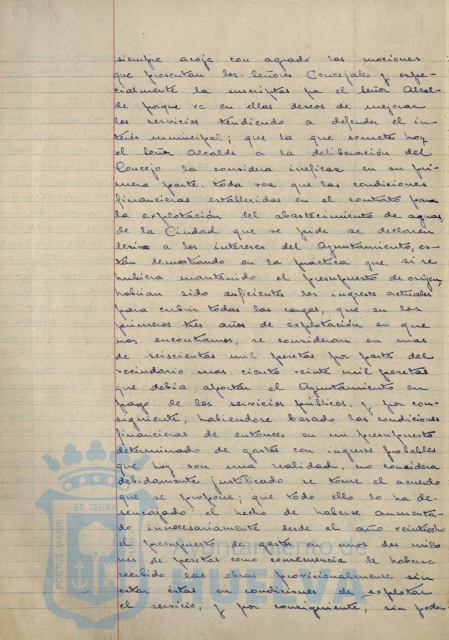 siempre acoje con agrado las mociones
que presentan los Señores Concejales y espe-
cialmente la suscriptas por el Señor Alcal-
de porque ve en ellas deseos de mejorar
los servicios tendiendo a defender el in-
terés municipal; que la que somete hoy
el Señor Alcalde a la deliberación del
Concejo la considera ineficaz en su pri-
mera parte, toda vez que las condiciones
financieras establecidas en el contrato para
la explotación del abastecimiento de aguas
de la Ciudad que se pide se declaren
lesiva a los intereses del Ayuntamiento, es-
tán demostrando en la práctica que, si se
hubiera mantenido el presupuesto de origen,
habían sido suficientes los ingresos actuales
para cubrir todas las cargas, que en los
primeros tres años de explotación en que
nos encontramos, se consideran en mas
de seiscientas mil pesetas por parte del
vecindario mas ciento veinte mil pesetas
que debia aportar el Ayuntamiento en
pago de los servicios públicos, y por con-
siguiente, habiendose basado las condiciones
financieras de entonces en un presupuesto
determinado de gastos con ingresos probables
que hoy son una realidad, no considera
debidamente justificado se tome el acuerdo
que se propone; que todo ello lo ha de-
sencajado el hecho de haberse aumenta-
do innecesariamente desde el año veintiocho
el presupuesto de gastos en unos dos millo
nes de pesetas como consecuencia de haberse
recibido las obras provisionalmente sin
estar éstas en condiciones de explotar
el servicio, y por consiguiente, sin poder
Ayuntamiento de
HUELVA